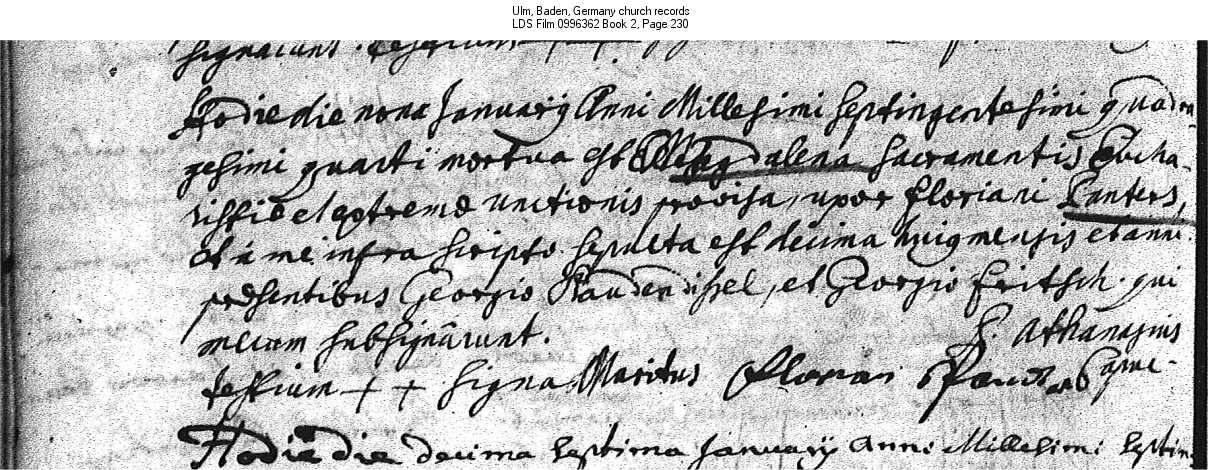 Ulm, Baden, Germany church records
LDS Film 0996362 Book 2, Page 230
signarunt.
Hodie die nona Januarij Anni Millesimi septingentesimi quadra-
gesimi quarti mortua est Magdalena sacramentis Eucha-
ristiae et extremae unctionis provisa, uxor floriani Panters,
et à me infra scripto sepulta est decima huius mensis et anni
praesentibus Georgio et Georgio fritsch qui
mecum subsignârunt.
F. Athanasius
testium + + signa Maritus florian
Capuc-
Hodie die decima septima Januarij anni Millesimi septin-